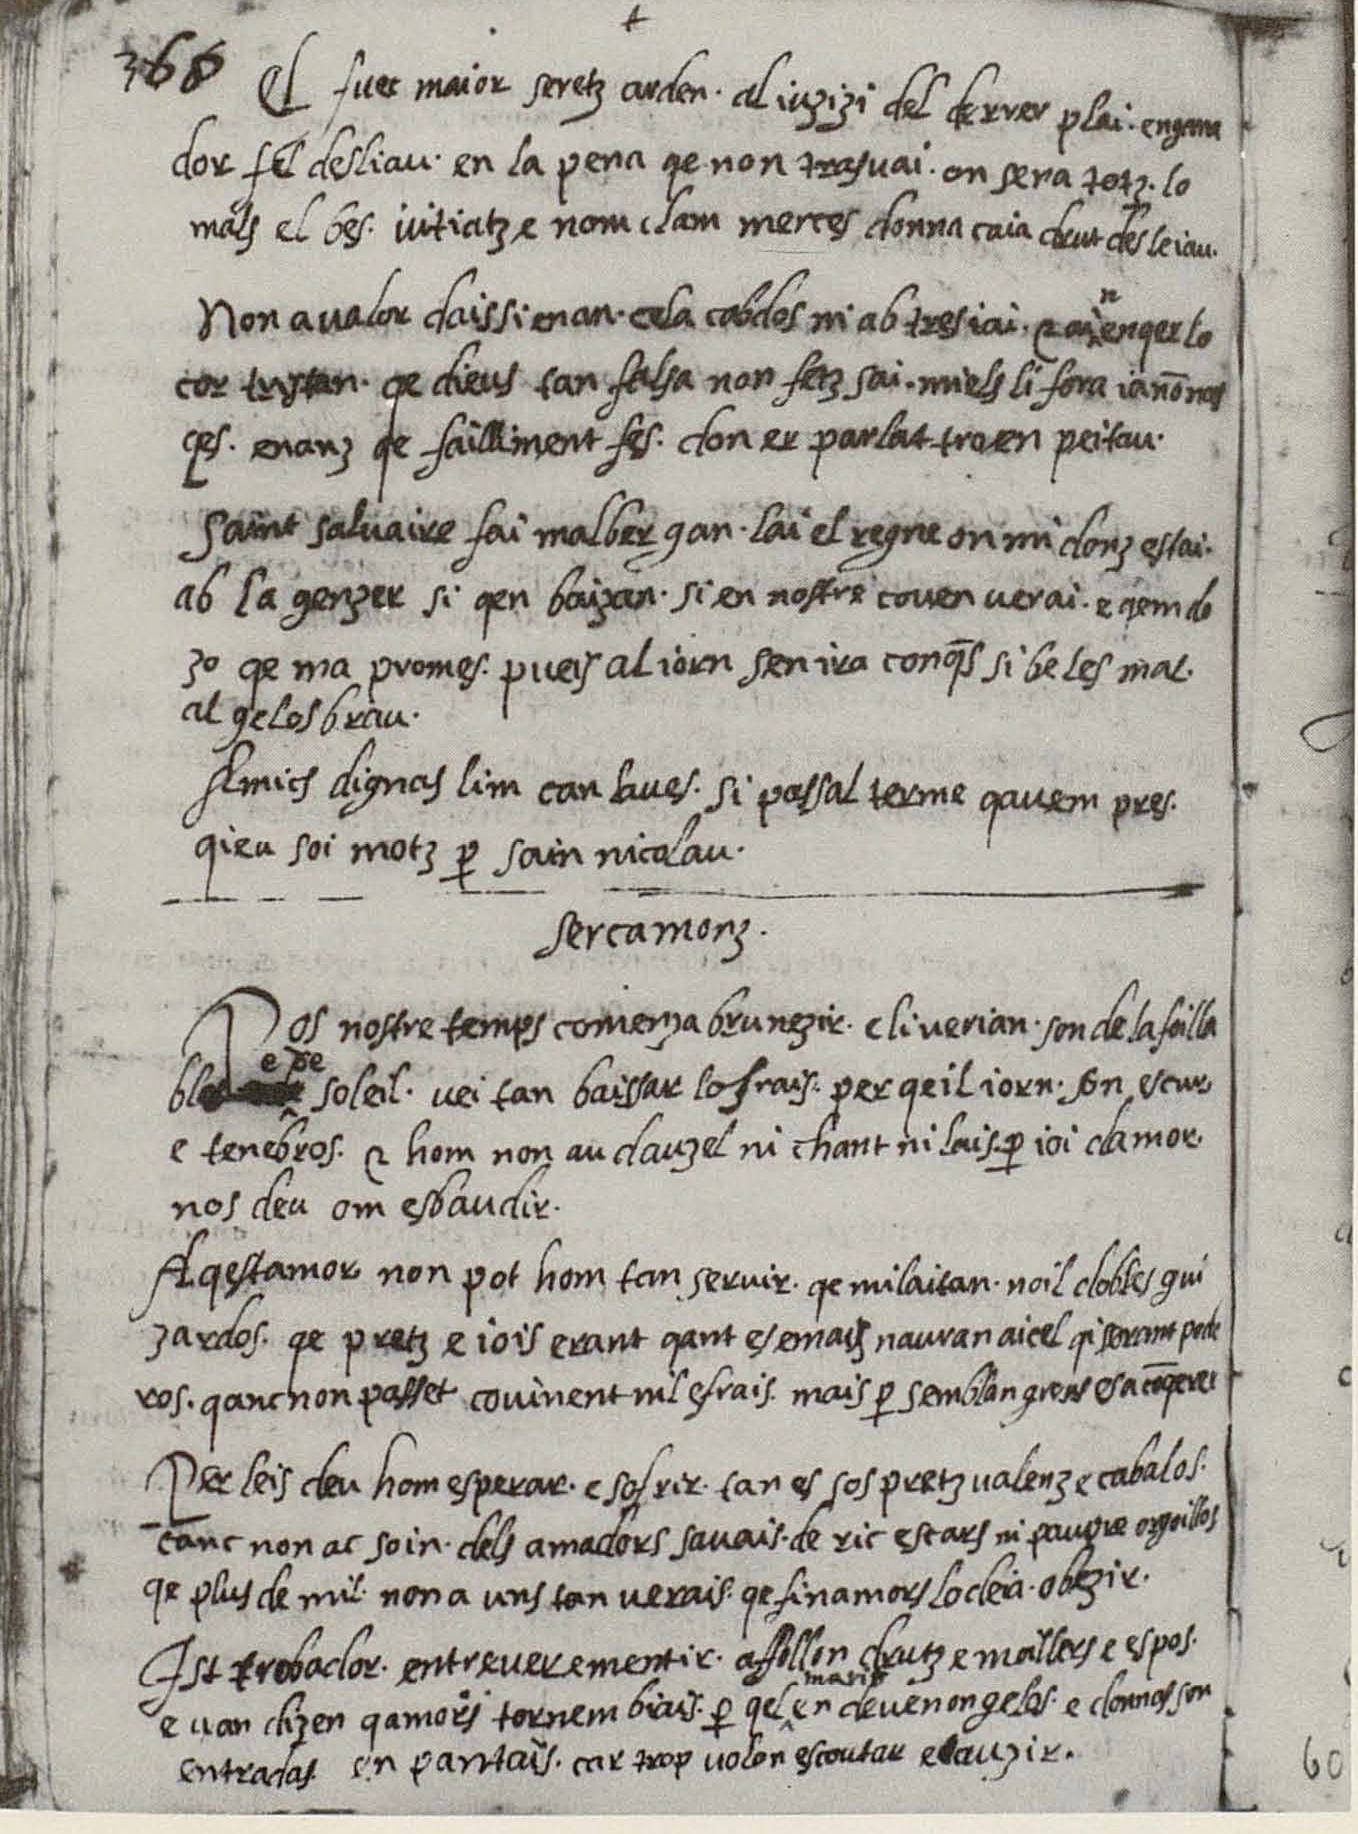 +
366 El fuec maior seretz arden. al iuzizi del derrer plai. engana
dor fel desliau. en la pena qe non trasuai. on sera totz. lo
mals el bes. iutiatz e nom clam merces donna caia drut desleiau.
Non a ualor daissi enan. cela cab dos ni ab tres iai. 
cor tristan. qe dieus tan falsa non fetz sai. miels li fora ia nō nas
qes. enanz qe failliment fes. don er parlat tro en peitau.
Saint saluaire fai malber gan. lai el regne on mi donz estai.
ab la genzer si qen baizan. si en nostre couen uerai. e qem do
zo qe ma promes. pueis al iorn sen ira conqs si be les mal.
al gelos brau.
Amics dignas lim can laues. si passal terme qauem pres.
qieu soi motz p sain nicolau.
Sercamonz.
Pos nostre temps comenza brunezir. e li uerian. son de la foilla
soleil. uei tan baissar lo frais. per qeil iorn. son escur
e tenebros. & hom non au dauzel ni chant ni lais. p ioi damor.
nos deu om esbaudir.
Aqestamor non pot hom tan seruir. qe mil aitan. noil dobles gui
zardos. qe pretz e iois erant qant es e mais nauran aicel qi serant pode
ros. qanc non passet couinent nil esfrais. mais p semblan greus es a cōqerer
Per leis deu hom esperar. e sofrir. tan es sos pretz ualenz e cabalos.
canc non ac soin. dels amadors sauais. de ric escars ni paupre orgoillos
qe plus de mil. non a uns tan uerais. qe finamors lo deia. obezir.
Ist trobador. entreuer e mentir. affollon drutz e moillers e espos.
marit
e uan dizen qamors tornem biais. p qel en deuenon gelos. e donnas son
entradas en pantais. car trop uolon escoutar e lauzir.
60